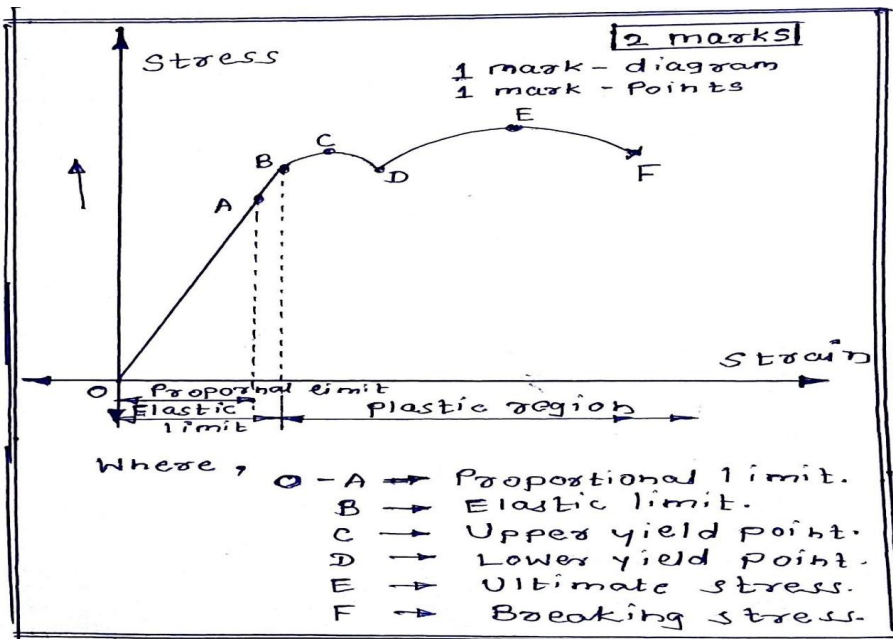 2 marks
Stress
1 mark - diagram
1 mark - Points
E
C
B
D
F
A
Strain
O
Propornal limit
Elastic
limit
Plastic region
Where,
O - A → Proportional limit.
B → Elastic limit.
C → Upper yield point.
D → Lower yield point.
E → Ultimate stress.
F → Breaking stress.